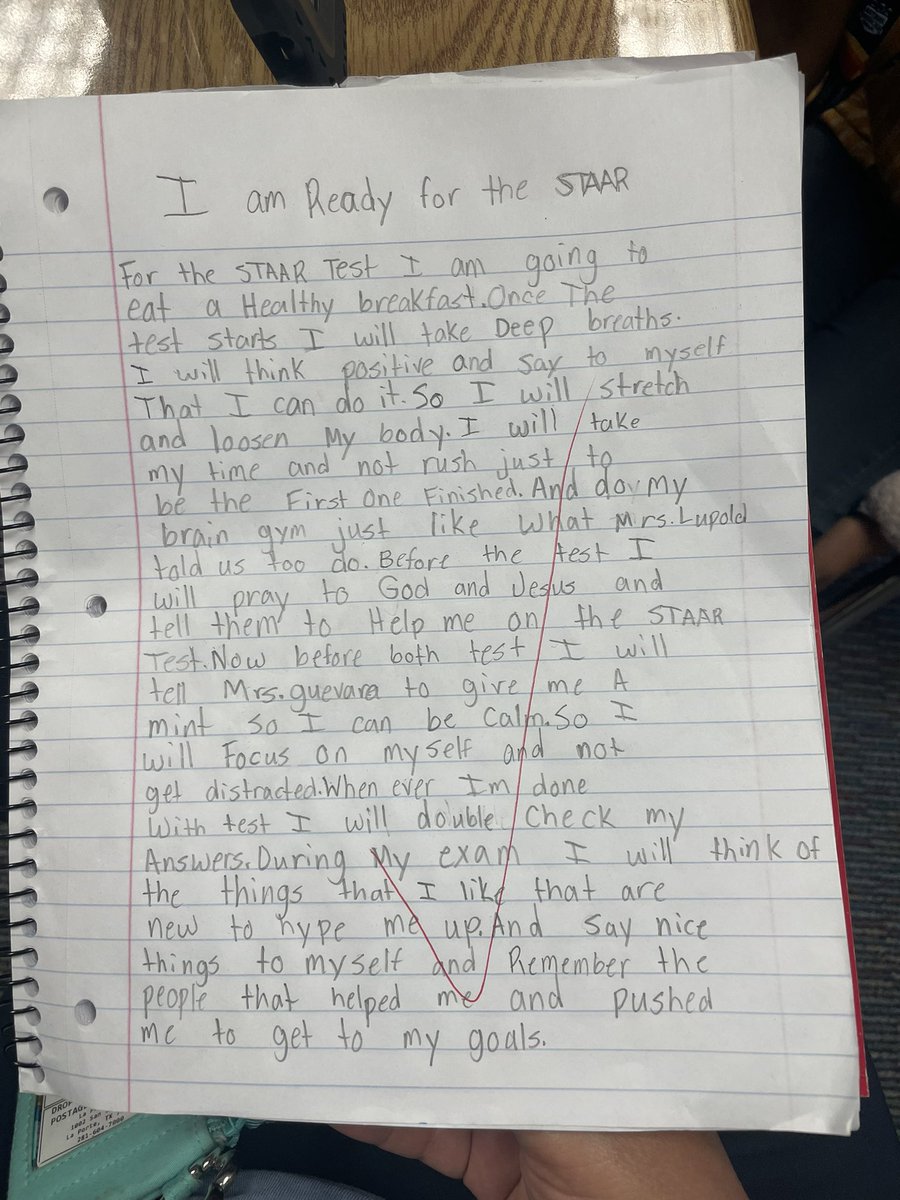 I am Ready for the STAAR
For the STAAR Test I am going to
eat a Healthy breakfast. Once The
test starts I will take Deep breaths.
I will think positive and say to myself
That I can do it. So I will stretch
and loosen My body. I will take
my time and not rush just to
be the First One Finished. And do my
brain gym just like what Mrs. Lupold
told us too do. Before the test I
will pray to God and Jesus and
tell them to Help me on the STAAR
Test. Now before both test I will
tell Mrs. guevara to give me A
mint so I can be Calm. So I
will Focus on myself and not
get distracted. When ever Im done
With test I will double Check my
Answers. During My exam I will think of
the things that I like that are
new to hype me up. And say nice
things to myself and Remember the
people that helped me and pushed
me to get to my goals.
POSTAG
La Porte, TX
281-604-7000